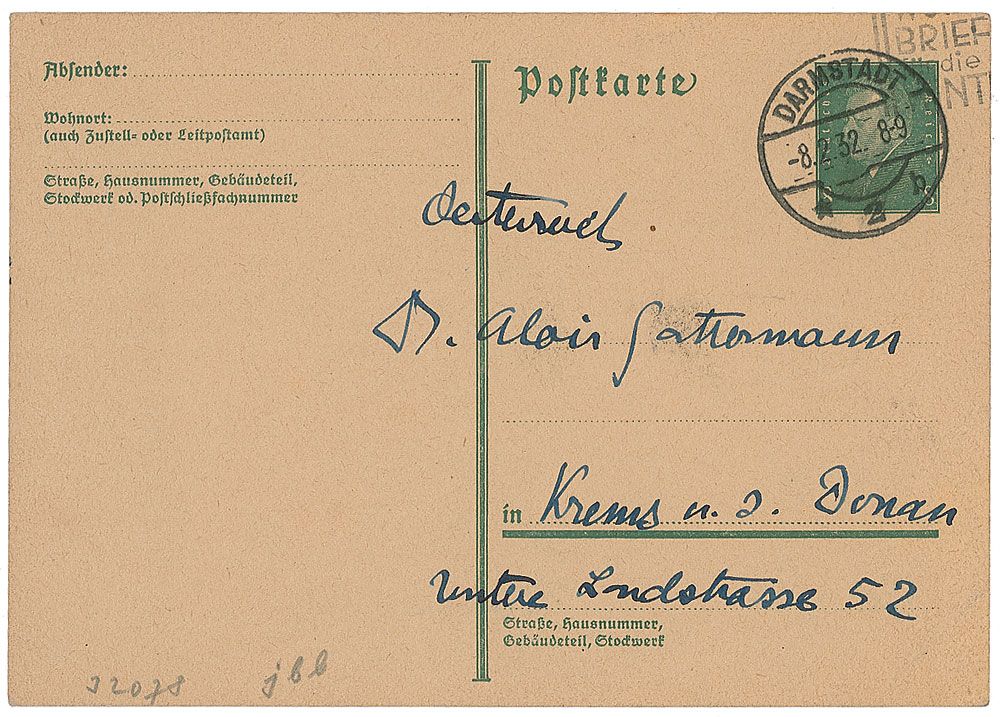 Absender:
Wohnort:
(auch Zustell- oder Leitpostamt)
Straße, Hausnummer, Gebäudeteil,
Stockwerk od. Postschließfachnummer
Postkarte
BRIEF
die
DARMSTADT
-8.2.32. 8-9
2 b
Oesterreich
Dr. Alois Gattermann
in Krems a. d. Donau
Untere Landstrasse 52
Straße, Hausnummer,
Gebäudeteil, Stockwerk
32078 jbb